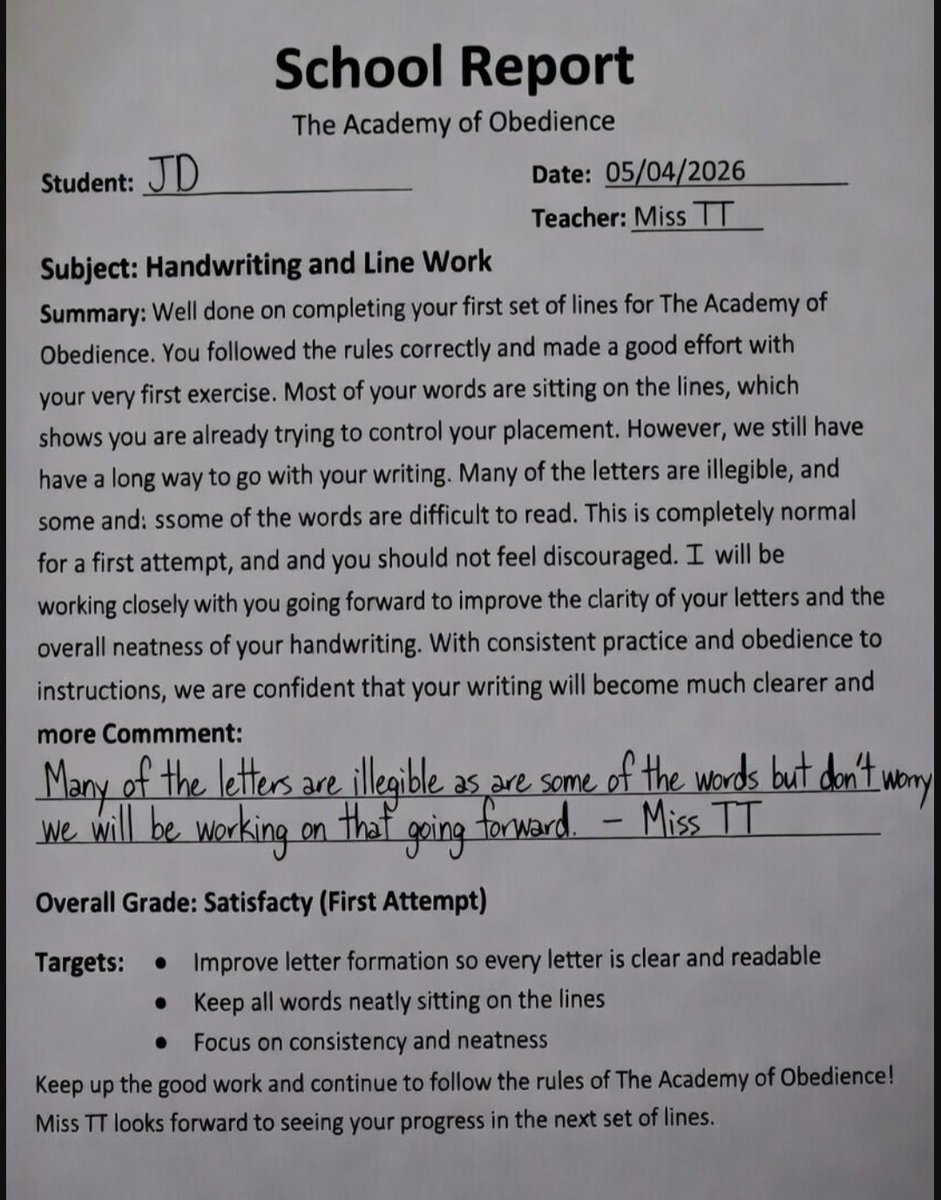 School Report
The Academy of Obedience
Student: JD
Date: 05/04/2026
Teacher: Miss TT
Subject: Handwriting and Line Work
Summary: Well done on completing your first set of lines for The Academy of
Obedience. You followed the rules correctly and made a good effort with
your very first exercise. Most of your words are sitting on the lines, which
shows you are already trying to control your placement. However, we still have
have a long way to go with your writing. Many of the letters are illegible, and
some and: ssome of the words are difficult to read. This is completely normal
for a first attempt, and and you should not feel discouraged. I will be
working closely with you going forward to improve the clarity of your letters and the
overall neatness of your handwriting. With consistent practice and obedience to
instructions, we are confident that your writing will become much clearer and
more Commment:
Many of the letters are illegible as are some of the words but don't worry
we will be working on that going forward. - Miss TT
Overall Grade: Satisfacty (First Attempt)
Targets: • Improve letter formation so every letter is clear and readable
• Keep all words neatly sitting on the lines
• Focus on consistency and neatness
Keep up the good work and continue to follow the rules of The Academy of Obedience!
Miss TT looks forward to seeing your progress in the next set of lines.